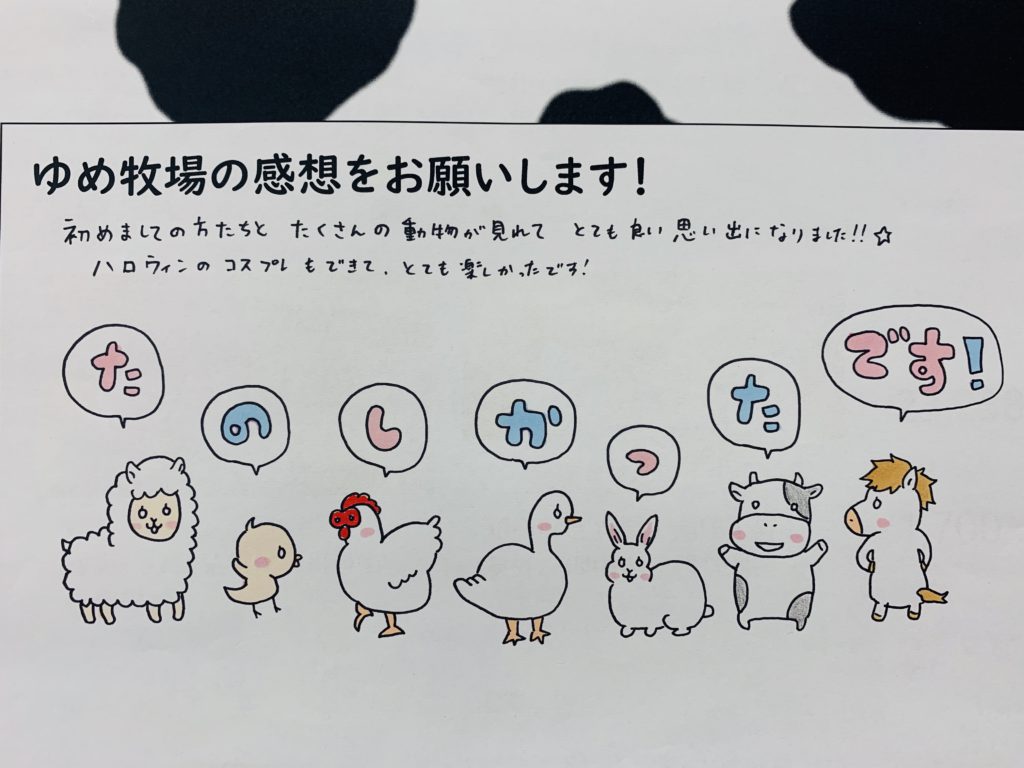 ゆめ牧場の感想をお願いします!
初めましての方たちと たくさんの動物が見れて とても良い思い出になりました!!☆
ハロウィンのコスプレもできて、とても楽しかったです!
た
の
し
か
っ
た
です!